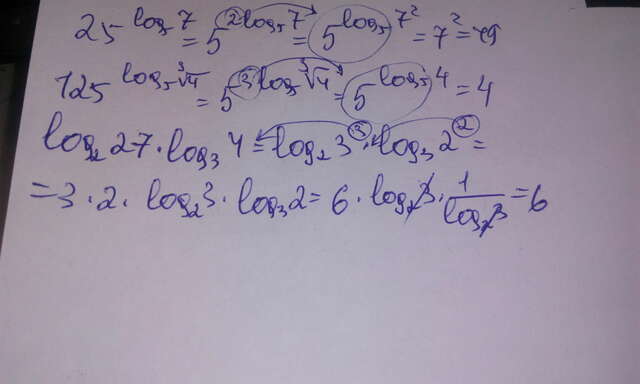 25^{log₅7} = 5^{2log₅7} = 5^{log₅7²} = 7² = 49
125^{log₅∛4} = 5^{3log₅∛4} = 5^{log₅4} = 4
log₂27·log₃4 = log₂3³·log₃2² =
= 3·2·log₂3·log₃2 = 6·log₂3·1/log₂3 = 6